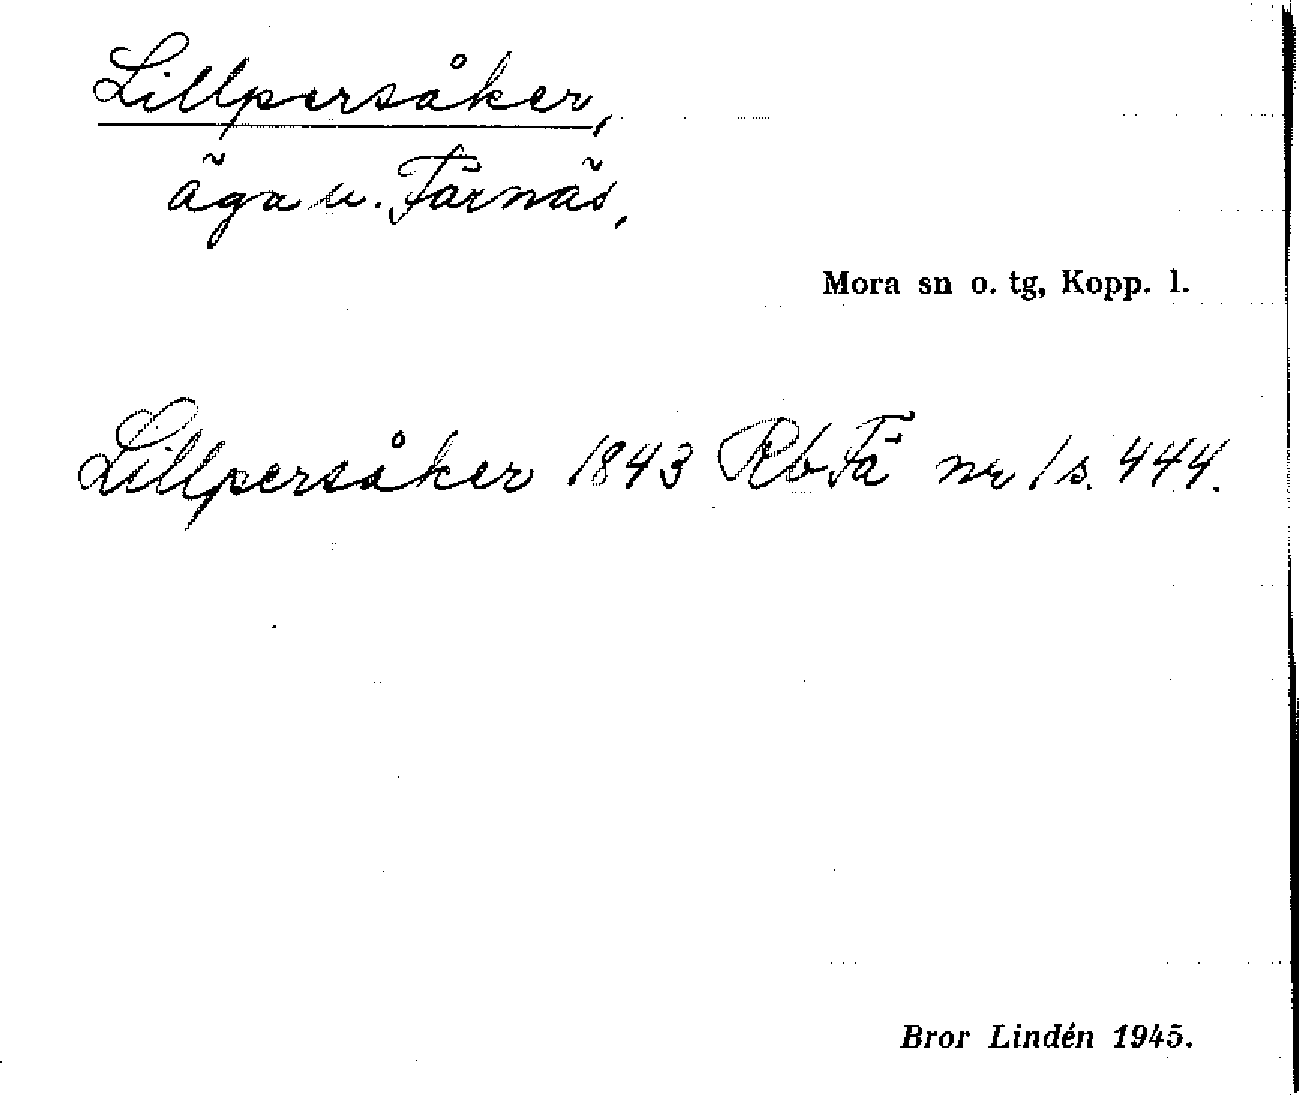 Lillpersåker,
äga u. Färnäs,
Mora sn o. tg, Kopp. l.
Lillpersåker 1843 Rb Fä nr 1 s. 444.
Bror Lindén 1945.